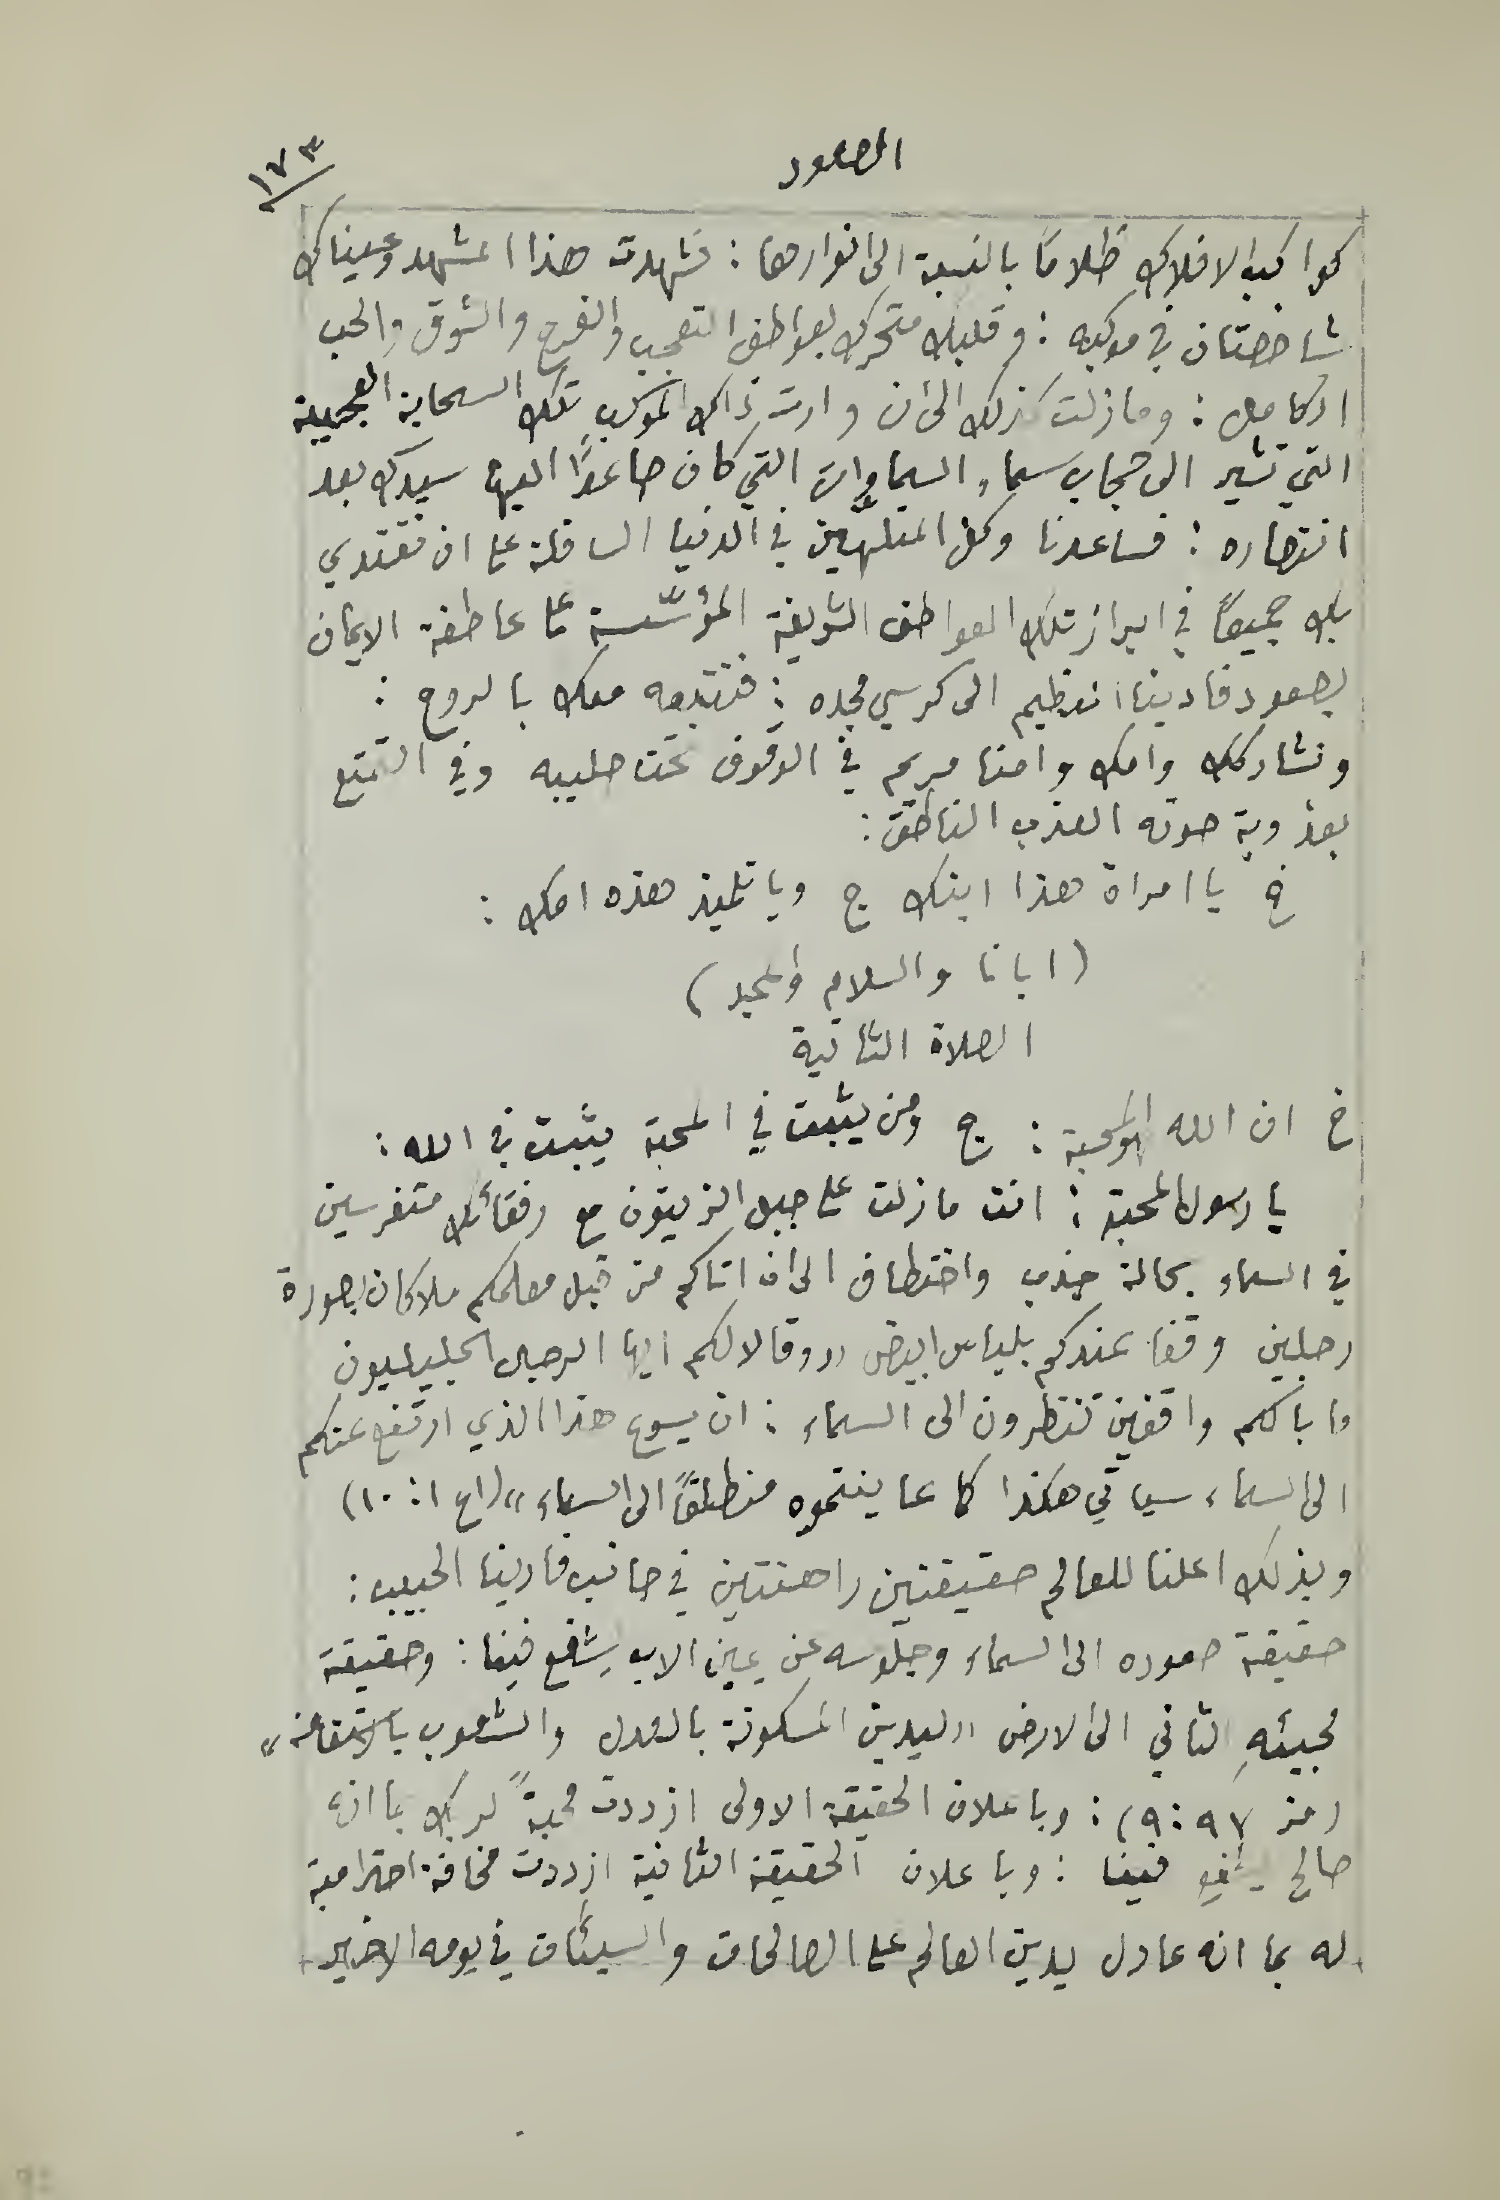 الصعود
١٧٣
كواكب الافلاك ظلامًا بالنسبة الى انوارها : فشهدت هذا المشهد وعيناك
شاخصتان في موكبه : وقلبك متحرك بعواطف التعجب والفرح والشوق والحب
الكامل : وما زلت كذلك الى ان وارت ذاك الموكب تلك السحابة العجيبة
التي تشير الى حجاب سماء السماوات التي كان صاعدًا اليها سيدك بعد
انتصاره : فساعدنا وكل المتلهّين في الدنيا السافلة على ان نقتدي
بك جميعًا في ابراز تلك العواطف الشريفة المؤسّسة على عاطفة الايمان
بصعود فادينا العظيم الى كرسي مجده : فنتبعه معك بالروح :
ونشاركك وامك وامنا مريم في الوقوف تحت صليبه وفي التمتع
بعذوبة صوته العذب الناطق :
خ يا امراة هذا ابنك ج ويا تلميذ هذه امك :
( ابانا والسلام والمجد )
الصلاة الثانية
خ ان الله المحبة : ج ومن يثبت في المحبة يثبت في الله :
يا رسول المحبة : انت ما زلت على جبل الزيتون مع رفقائك متفرسين
في السماء بحالة جذب واختطاف الى ان اتاكم من قبل معلمكم ملاكان بصورة
رجلين وقفا عندكم بلباس ابيض ״ وقالا لكم ايها الرجال الجليليون
ما بالكم واقفين تنظرون الى السماء : ان يسوع هذا الذي ارتفع عنكم
الى السماء سياتي هكذا كما عاينتموه منطلقًا الى السماء ״ (اع ١ : ١٠)
وبذلك اعلنا للعالم حقيقتين راهنتين في جانب فادينا الحبيب :
حقيقة صعوده الى السماء وجلوسه عن يمين الاب يشفع فينا : وحقيقة
مجيئهِ الثاني الى الارض ״ ليدين المسكونة بالعدل والشعوب بالاستقامة ״
(مز ٩٧ : ٩) : وباعلان الحقيقة الاولى ازددت محبةً لربك بما انه
صالح يشفع فينا : وباعلان الحقيقة الثانية ازددت مخافة احترامية
له بما انه عادل يدين العالم على الصالحات والسيئات في يومه الاخير